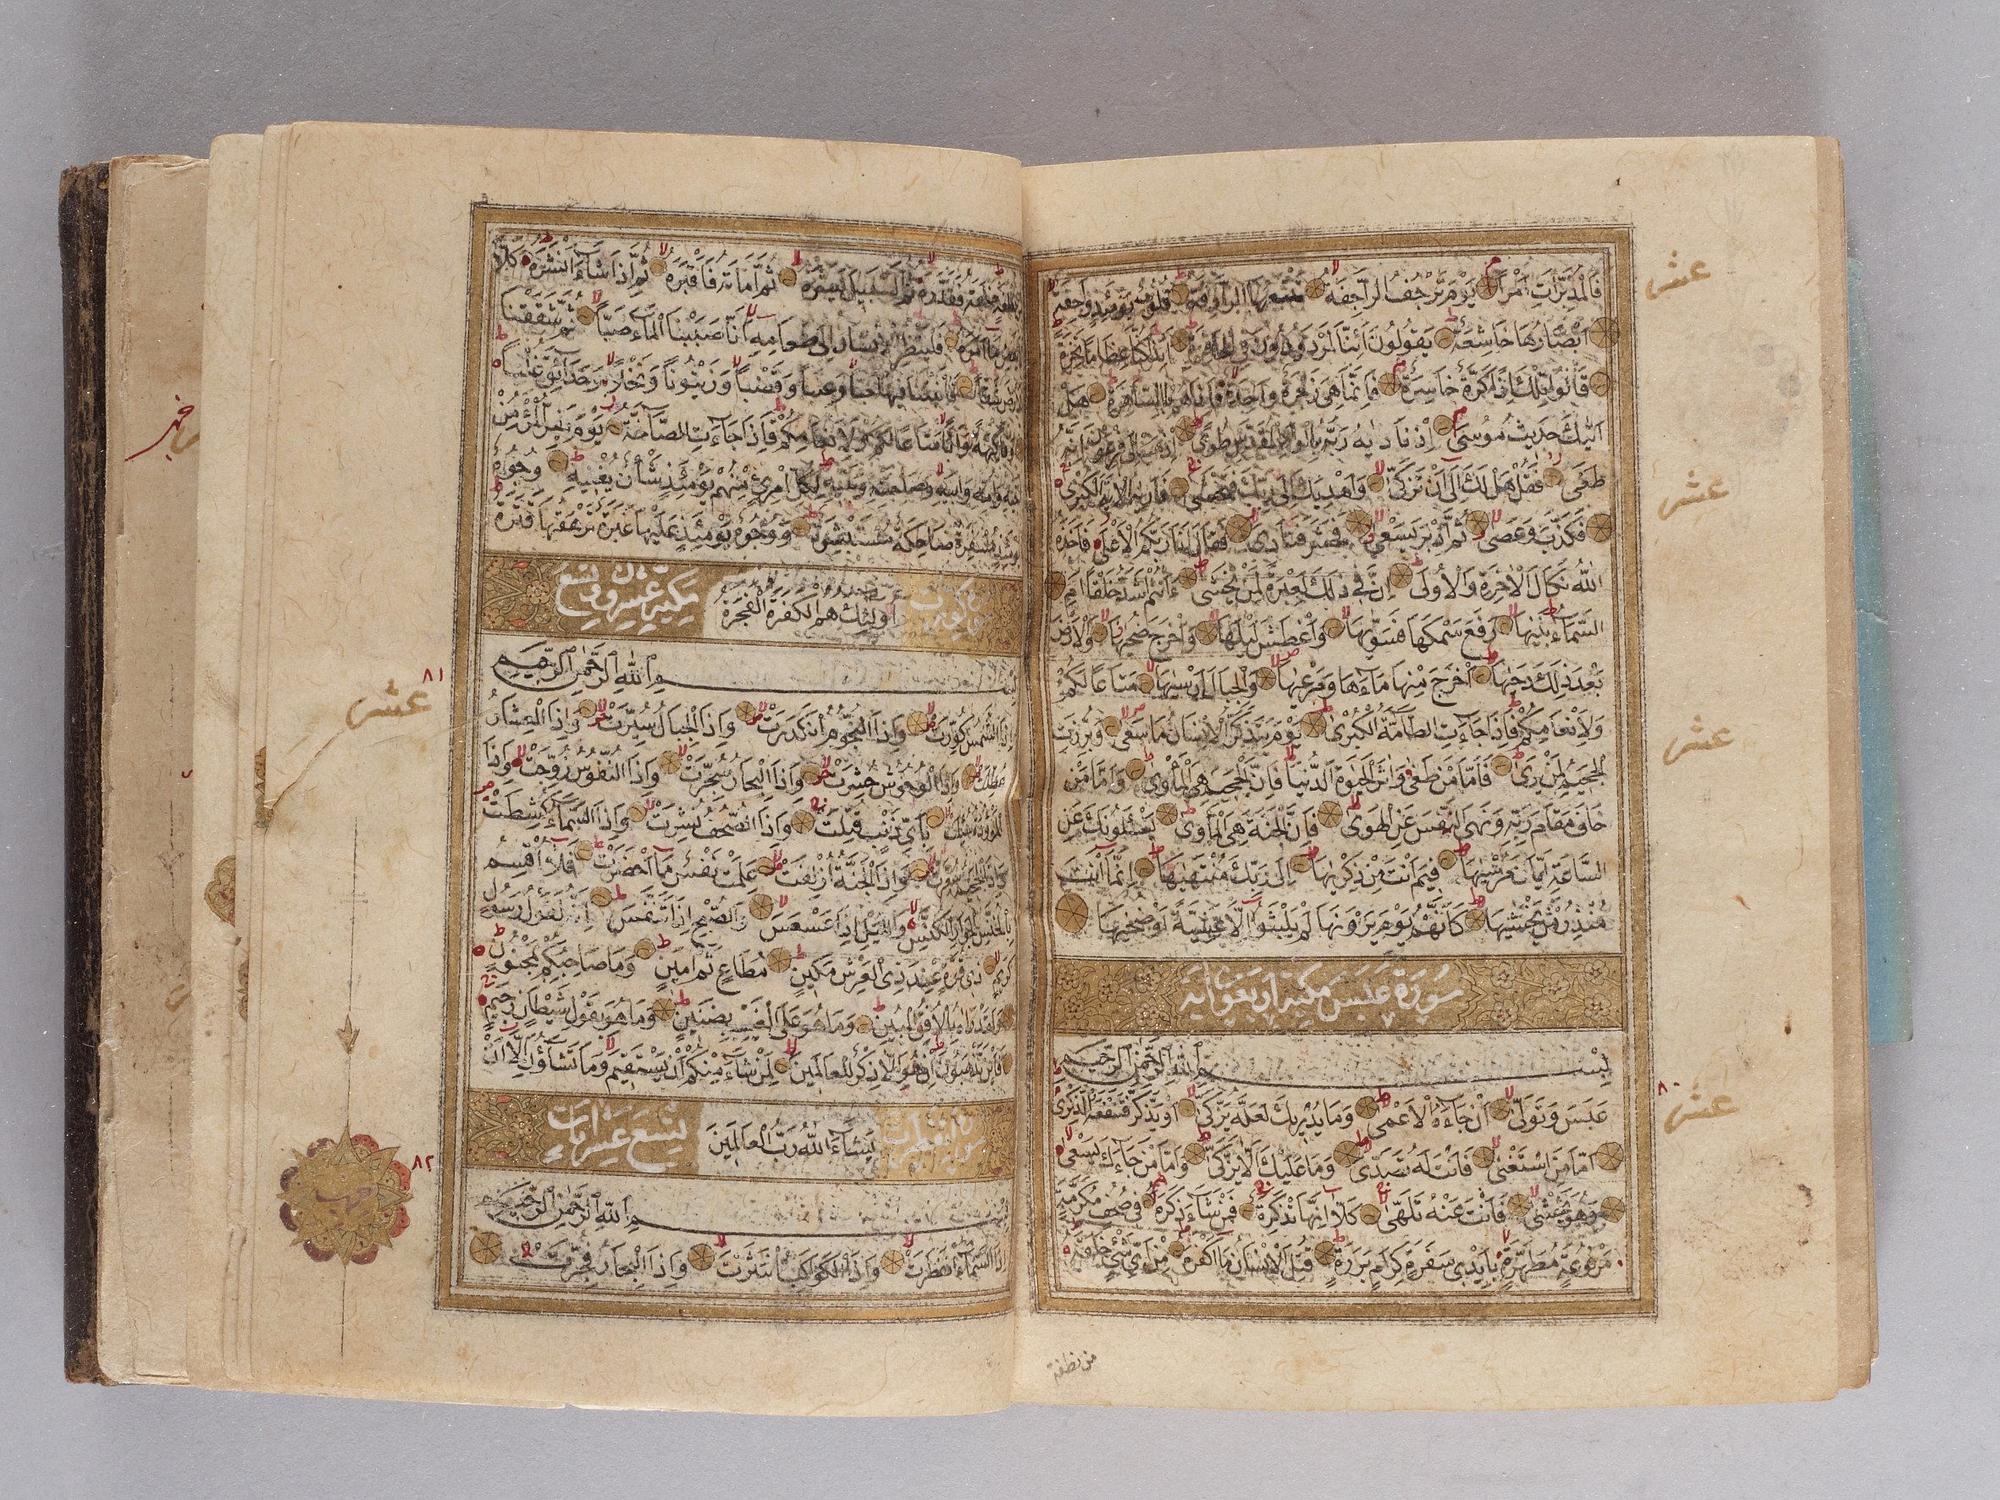 فَالْمُدَبِّرَاتِ أَمْرًا يَوْمَ تَرْجُفُ الرَّاجِفَةُ تَتْبَعُهَا الرَّادِفَةُ قُلُوبٌ يَوْمَئِذٍ وَاجِفَةٌ
أَبْصَارُهَا خَاشِعَةٌ يَقُولُونَ أَئِنَّا لَمَرْدُودُونَ فِي الْحَافِرَةِ أَئِذَا كُنَّا عِظَامًا نَخِرَةً
قَالُوا تِلْكَ إِذًا كَرَّةٌ خَاسِرَةٌ فَإِنَّمَا هِيَ زَجْرَةٌ وَاحِدَةٌ فَإِذَا هُمْ بِالسَّاهِرَةِ هَلْ
أَتَيكَ حَدِيثُ مُوسَى إِذْ نَادَيهُ رَبُّهُ بِالْوَادِ الْمُقَدَّسِ طُوًى اذْهَبْ إِلَى فِرْعَوْنَ إِنَّهُ
طَغَى فَقُلْ هَلْ لَكَ إِلَى أَنْ تَزَكَّى وَأَهْدِيَكَ إِلَى رَبِّكَ فَتَخْشَى فَأَرَيهُ الْآيَةَ الْكُبْرَى
فَكَذَّبَ وَعَصَى ثُمَّ أَدْبَرَ يَسْعَى فَحَشَرَ فَنَادَى فَقَالَ أَنَا رَبُّكُمُ الْأَعْلَى فَأَخَذَهُ
اللَّهُ نَكَالَ الْآخِرَةِ وَالْأُولَى إِنَّ فِي ذَلِكَ لَعِبْرَةً لِمَنْ يَخْشَى ءَأَنْتُمْ أَشَدُّ خَلْقًا أَمِ
السَّمَاءُ بَنَيهَا رَفَعَ سَمْكَهَا فَسَوَّيهَا وَأَغْطَشَ لَيْلَهَا وَأَخْرَجَ ضُحَيهَا وَالْأَرْضَ
بَعْدَ ذَلِكَ دَحَيهَا أَخْرَجَ مِنْهَا مَاءَهَا وَمَرْعَيهَا وَالْجِبَالَ أَرْسَيهَا مَتَاعًا لَكُمْ
وَلِأَنْعَامِكُمْ فَإِذَا جَاءَتِ الطَّامَّةُ الْكُبْرَى يَوْمَ يَتَذَكَّرُ الْإِنْسَانُ مَا سَعَى وَبُرِّزَتِ
الْجَحِيمُ لِمَنْ يَرَى فَأَمَّا مَنْ طَغَى وَآثَرَ الْحَيَوةَ الدُّنْيَا فَإِنَّ الْجَحِيمَ هِيَ الْمَأْوَى وَأَمَّا مَنْ
خَافَ مَقَامَ رَبِّهِ وَنَهَى النَّفْسَ عَنِ الْهَوَى فَإِنَّ الْجَنَّةَ هِيَ الْمَأْوَى يَسْئَلُونَكَ عَنِ
السَّاعَةِ أَيَّانَ مُرْسَيهَا فِيمَ أَنْتَ مِنْ ذِكْرَيهَا إِلَى رَبِّكَ مُنْتَهَيهَا إِنَّمَا أَنْتَ
مُنْذِرُ مَنْ يَخْشَيهَا كَأَنَّهُمْ يَوْمَ يَرَوْنَهَا لَمْ يَلْبَثُوا إِلَّا عَشِيَّةً أَوْ ضُحَيهَا
سُورَةُ عَبَسَ مَكِّيَّة أربعون آية
بِسْمِ اللَّهِ الرَّحْمَنِ الرَّحِيمِ
عَبَسَ وَتَوَلَّى أَنْ جَاءَهُ الْأَعْمَى وَمَا يُدْرِيكَ لَعَلَّهُ يَزَّكَّى أَوْ يَذَّكَّرُ فَتَنْفَعَهُ الذِّكْرَى
أَمَّا مَنِ اسْتَغْنَى فَأَنْتَ لَهُ تَصَدَّى وَمَا عَلَيْكَ أَلَّا يَزَّكَّى وَأَمَّا مَنْ جَاءَكَ يَسْعَى
وَهُوَ يَخْشَى فَأَنْتَ عَنْهُ تَلَهَّى كَلَّا إِنَّهَا تَذْكِرَةٌ فَمَنْ شَاءَ ذَكَرَهُ فِي صُحُفٍ مُكَرَّمَةٍ
مَرْفُوعَةٍ مُطَهَّرَةٍ بِأَيْدِي سَفَرَةٍ كِرَامٍ بَرَرَةٍ قُتِلَ الْإِنْسَانُ مَا أَكْفَرَهُ مِنْ أَيِّ شَيْءٍ خَلَقَهُ
من نطفة
عشر
عشر
عشر
٨٠
عشر
نُطْفَةٍ خَلَقَهُ فَقَدَّرَهُ ثُمَّ السَّبِيلَ يَسَّرَهُ ثُمَّ أَمَاتَهُ فَأَقْبَرَهُ ثُمَّ إِذَا شَاءَ أَنْشَرَهُ كَلَّا
يَقْضِ مَا أَمَرَهُ فَلْيَنْظُرِ الْإِنْسَانُ إِلَى طَعَامِهِ أَنَّا صَبَبْنَا الْمَاءَ صَبًّا ثُمَّ شَقَقْنَا
الْأَرْضَ شَقًّا فَأَنْبَتْنَا فِيهَا حَبًّا وَعِنَبًا وَقَضْبًا وَزَيْتُونًا وَنَخْلًا وَحَدَائِقَ غُلْبًا
وَفَاكِهَةً وَأَبًّا مَتَاعًا لَكُمْ وَلِأَنْعَامِكُمْ فَإِذَا جَاءَتِ الصَّاخَّةُ يَوْمَ يَفِرُّ الْمَرْءُ مِنْ
أَخِيهِ وَأُمِّهِ وَأَبِيهِ وَصَاحِبَتِهِ وَبَنِيهِ لِكُلِّ امْرِئٍ مِنْهُمْ يَوْمَئِذٍ شَأْنٌ يُغْنِيهِ وُجُوهٌ
يَوْمَئِذٍ مُسْفِرَةٌ ضَاحِكَةٌ مُسْتَبْشِرَةٌ وَوُجُوهٌ يَوْمَئِذٍ عَلَيْهَا غَبَرَةٌ تَرْهَقُهَا قَتَرَةٌ
أُولَئِكَ هُمُ الْكَفَرَةُ الْفَجَرَةُ مكية عشرون وتسع
بِسْمِ اللَّهِ الرَّحْمَنِ الرَّحِيمِ
إِذَا الشَّمْسُ كُوِّرَتْ وَإِذَا النُّجُومُ انْكَدَرَتْ وَإِذَا الْجِبَالُ سُيِّرَتْ وَإِذَا الْعِشَارُ
عُطِّلَتْ وَإِذَا الْوُحُوشُ حُشِرَتْ وَإِذَا الْبِحَارُ سُجِّرَتْ وَإِذَا النُّفُوسُ زُوِّجَتْ وَإِذَا
الْمَوْؤُدَةُ سُئِلَتْ بِأَيِّ ذَنْبٍ قُتِلَتْ وَإِذَا الصُّحُفُ نُشِرَتْ وَإِذَا السَّمَاءُ كُشِطَتْ
وَإِذَا الْجَحِيمُ سُعِّرَتْ وَإِذَا الْجَنَّةُ أُزْلِفَتْ عَلِمَتْ نَفْسٌ مَا أَحْضَرَتْ فَلَا أُقْسِمُ
بِالْخُنَّسِ الْجَوَارِ الْكُنَّسِ وَاللَّيْلِ إِذَا عَسْعَسَ وَالصُّبْحِ إِذَا تَنَفَّسَ إِنَّهُ لَقَوْلُ رَسُولٍ
كَرِيمٍ ذِي قُوَّةٍ عِنْدَ ذِي الْعَرْشِ مَكِينٍ مُطَاعٍ ثَمَّ أَمِينٍ وَمَا صَاحِبُكُمْ بِمَجْنُونٍ
وَلَقَدْ رَآهُ بِالْأُفُقِ الْمُبِينِ وَمَا هُوَ عَلَى الْغَيْبِ بِضَنِينٍ وَمَا هُوَ بِقَوْلِ شَيْطَانٍ رَجِيمٍ
فَأَيْنَ تَذْهَبُونَ إِنْ هُوَ إِلَّا ذِكْرٌ لِلْعَالَمِينَ لِمَنْ شَاءَ مِنْكُمْ أَنْ يَسْتَقِيمَ وَمَا تَشَاؤُنَ إِلَّا أَنْ
سورة انفطرت يَشَاءَ اللَّهُ رَبُّ الْعَالَمِينَ تسع عشر آيات
بِسْمِ اللَّهِ الرَّحْمَنِ الرَّحِيمِ
إِذَا السَّمَاءُ انْفَطَرَتْ وَإِذَا الْكَوَاكِبُ انْتَثَرَتْ وَإِذَا الْبِحَارُ فُجِّرَتْ
٨١
عشر
٨٢
حزب